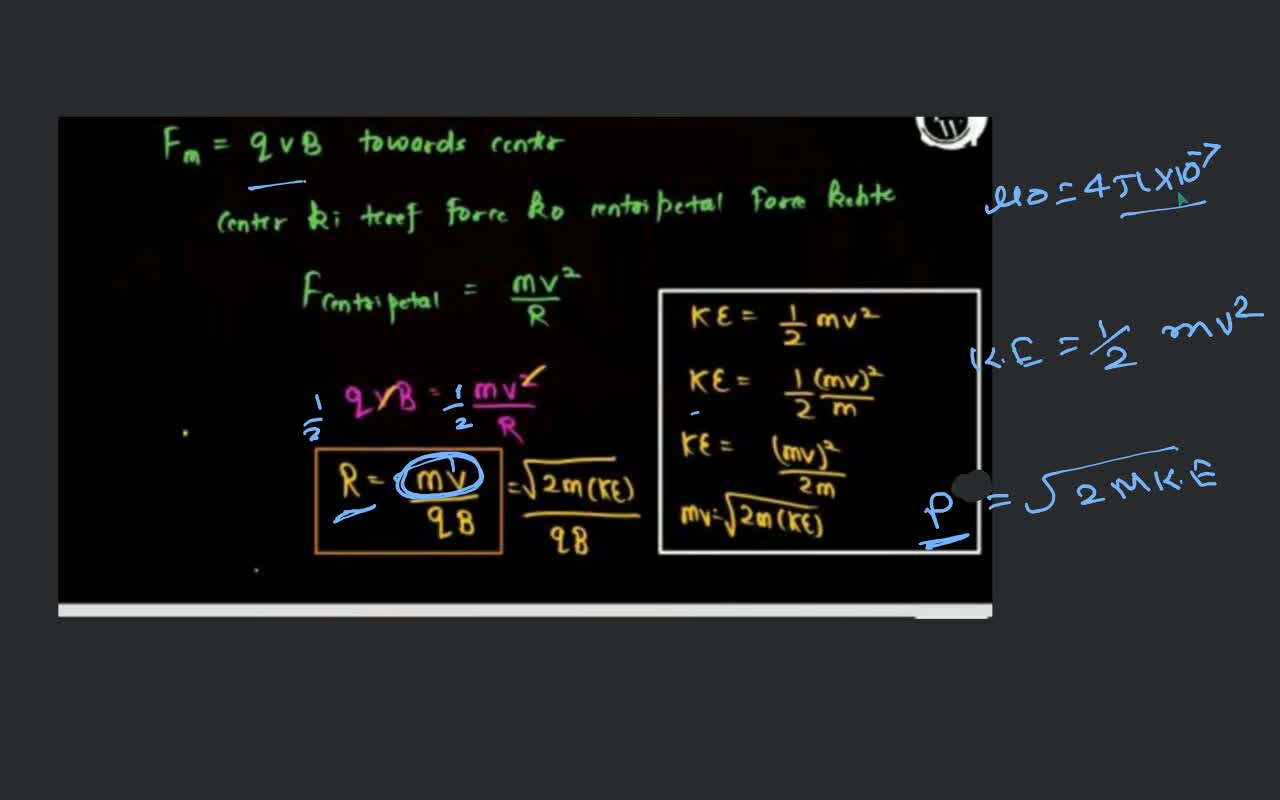 Fm = qvB towards center
center ki taraf force ko centripetal force kehte
Fcentripetal = mv²/R
1/2 qvB = 1/2 mv²/R
R = mv/qB = √2m(KE)/qB
KE = 1/2 mv²
KE = 1/2 (mv)²/m
KE = (mv)²/2m
mv = √2m(KE)
μ0 = 4π×10⁻⁷
K.E = 1/2 mv²
P = √2MK.E